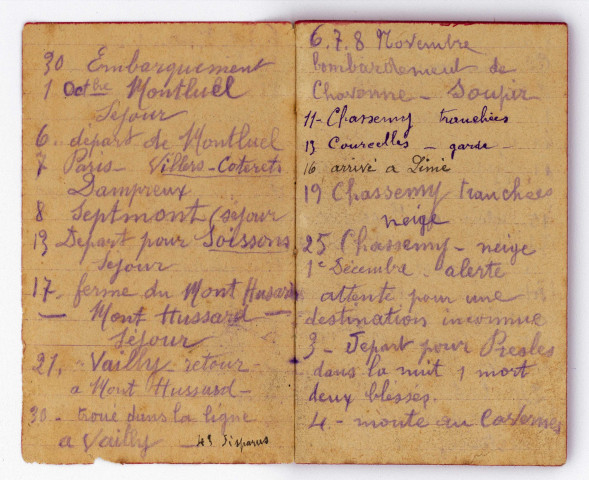 30 Embarquement
1 Octbre Montluel
Sejour
6. depart de Montluel
7 Paris - Villers-Coterets
Dampreux
8 Septmont (sejour
13 Depart pour Soissons
Sejour
17. ferme du Mont Husard
— Mont Hussard —
Séjour
21, - Vailly - retour -
a Mont Hussard -
30 - troué dans la ligne
a Vailly — 43 Disparus
6. 7. 8 Novembre
bombardement de
Chavonne - Soupir
11 - Chassemy tranchées
13 Courcelles - garde -
16 arrivé a Limé
19 Chassemy tranchées
neige
25 Chassemy - neige
1e Décembre - alerte
attente pour une
destination inconnue
3 - Depart pour Presles
dans la nuit 1 mort
deux blessés.
4. - monte au